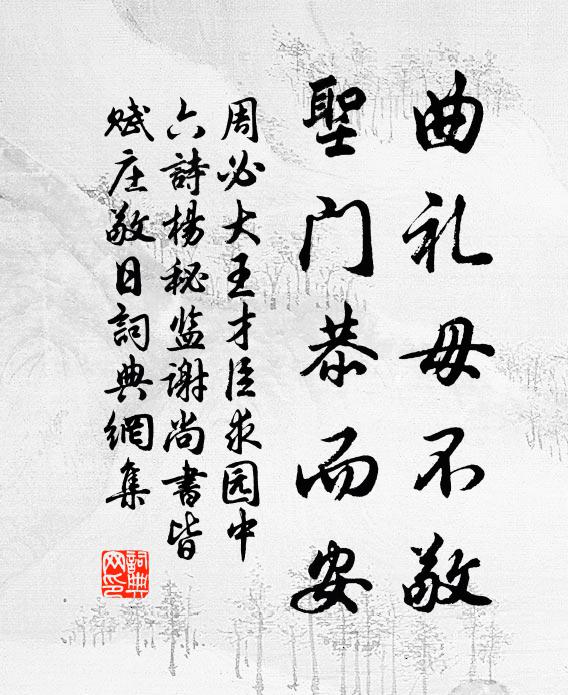 曲礼毋不敬
聖门恭而安
周必大王才臣求园中
六詩楊秘监谢尚書皆
赋庄敬日詞典網集
詞典
网印